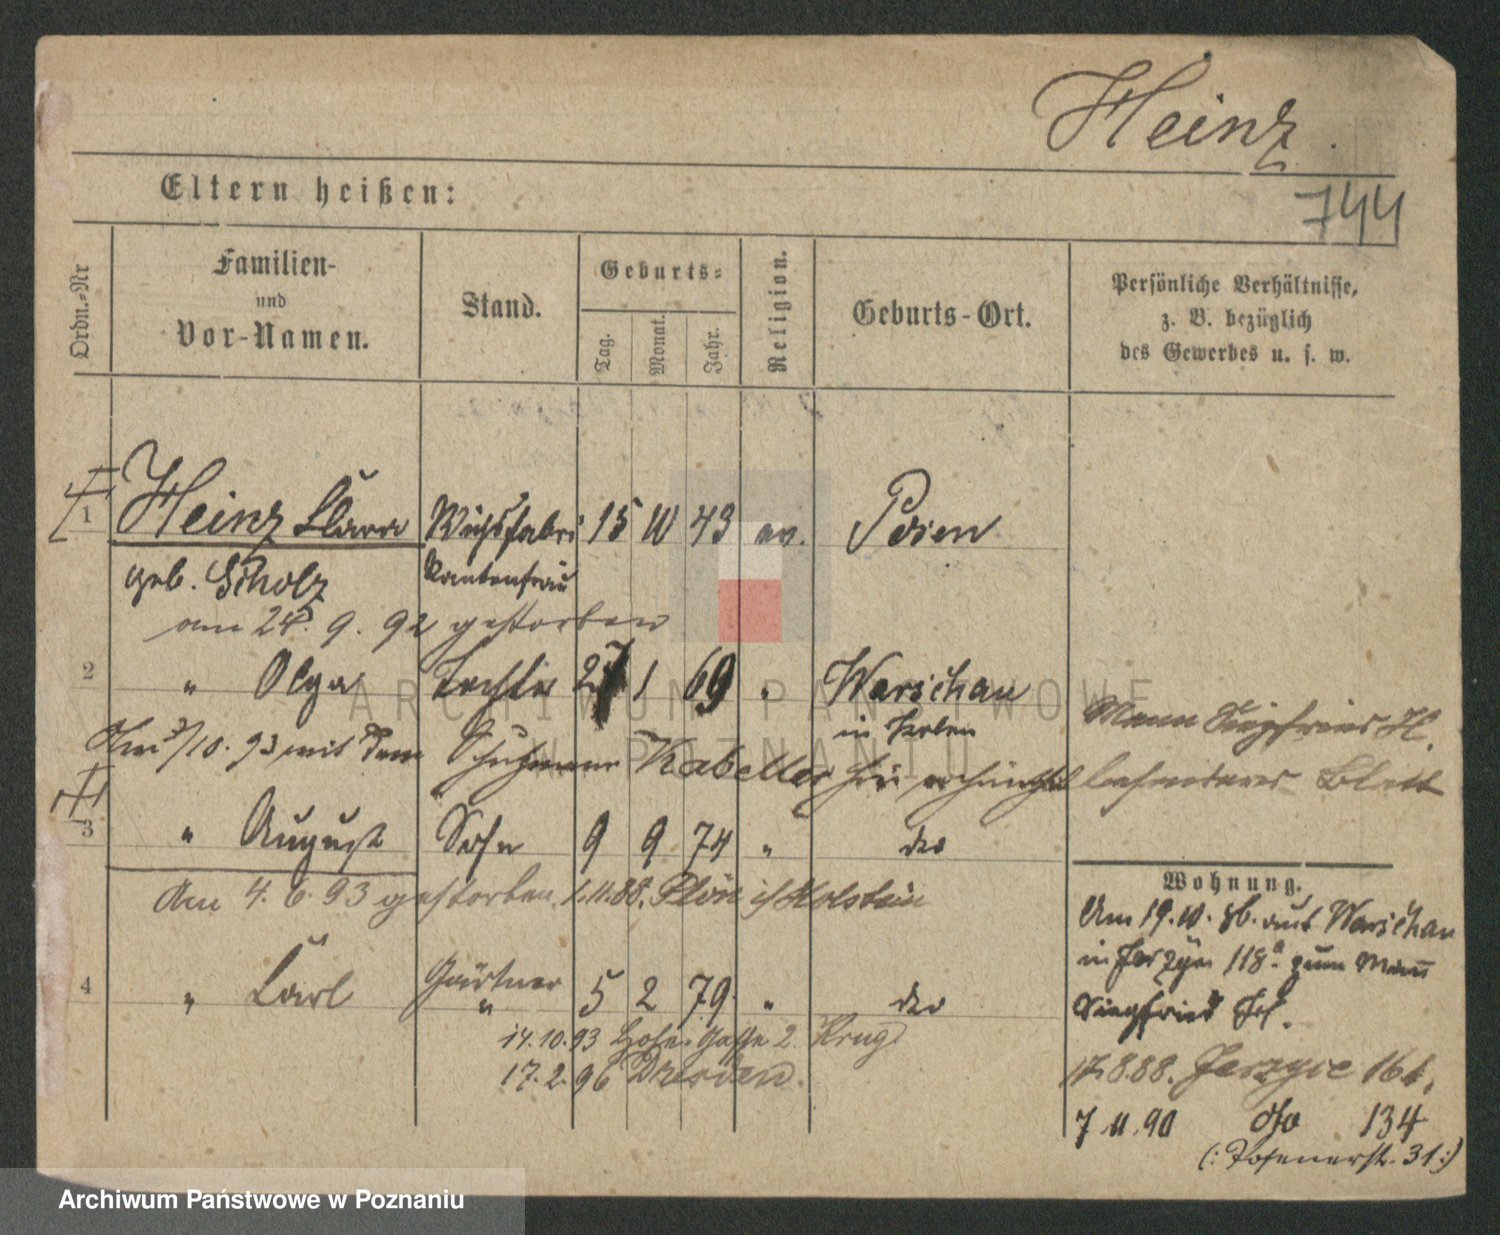 Heinz.
744
Eltern heißen:
Ordn.-Nr
Familien-
und
Vor-Namen.
Stand.
Geburts-
Tag.
Monat.
Jahr.
Religion.
Geburts-Ort.
Persönliche Verhältnisse,
z. B. bezüglich
des Gewerbes u. s. w.
1 Heinz Clara Wichsfabri 15 10 43 ev. Posen
geb. Scholz kantenfrau
am 28. 9. 92 gestorben
2 " Olga Tochter 27 1 69 " Warschau
in Polen
Mann Siegfried H.
/10. 93 mit dem Schuhmann Kabeller besonderes Blatt
3 " August Sohn 9 9 74 " do
Am 4. 6. 93 gestorben. 1.11.88. Plön i/Holstein
4 " Carl Gärtner 5 2 79 " do
"
14.10.93 Gasse 2. Krug
17. 2. 96 Dresden.
Wohnung.
Am 19. 10. 86. aus Warschau
in Jerzyce 118a. zum Mann
Siegfried
17.8.88. Jerzyce 161.
7 11. 90 do 134
(: Posenerstr. 31 :)
ARCHIWUM PAŃSTWOWE
W POZNANIU
Archiwum Państwowe w Poznaniu